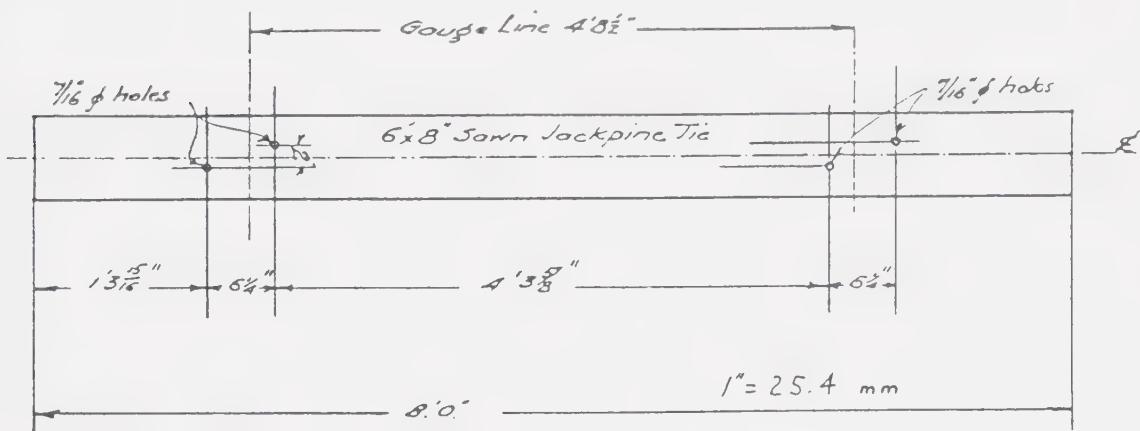 Gauge Line 4'8½"
7/16" ϕ holes
7/16" ϕ holes
6"x8" Sawn Jackpine Tie
2"
℄
1'3 15/16"
6¼"
4'3 5/8"
6¼"
1" = 25.4 mm
8'.0"